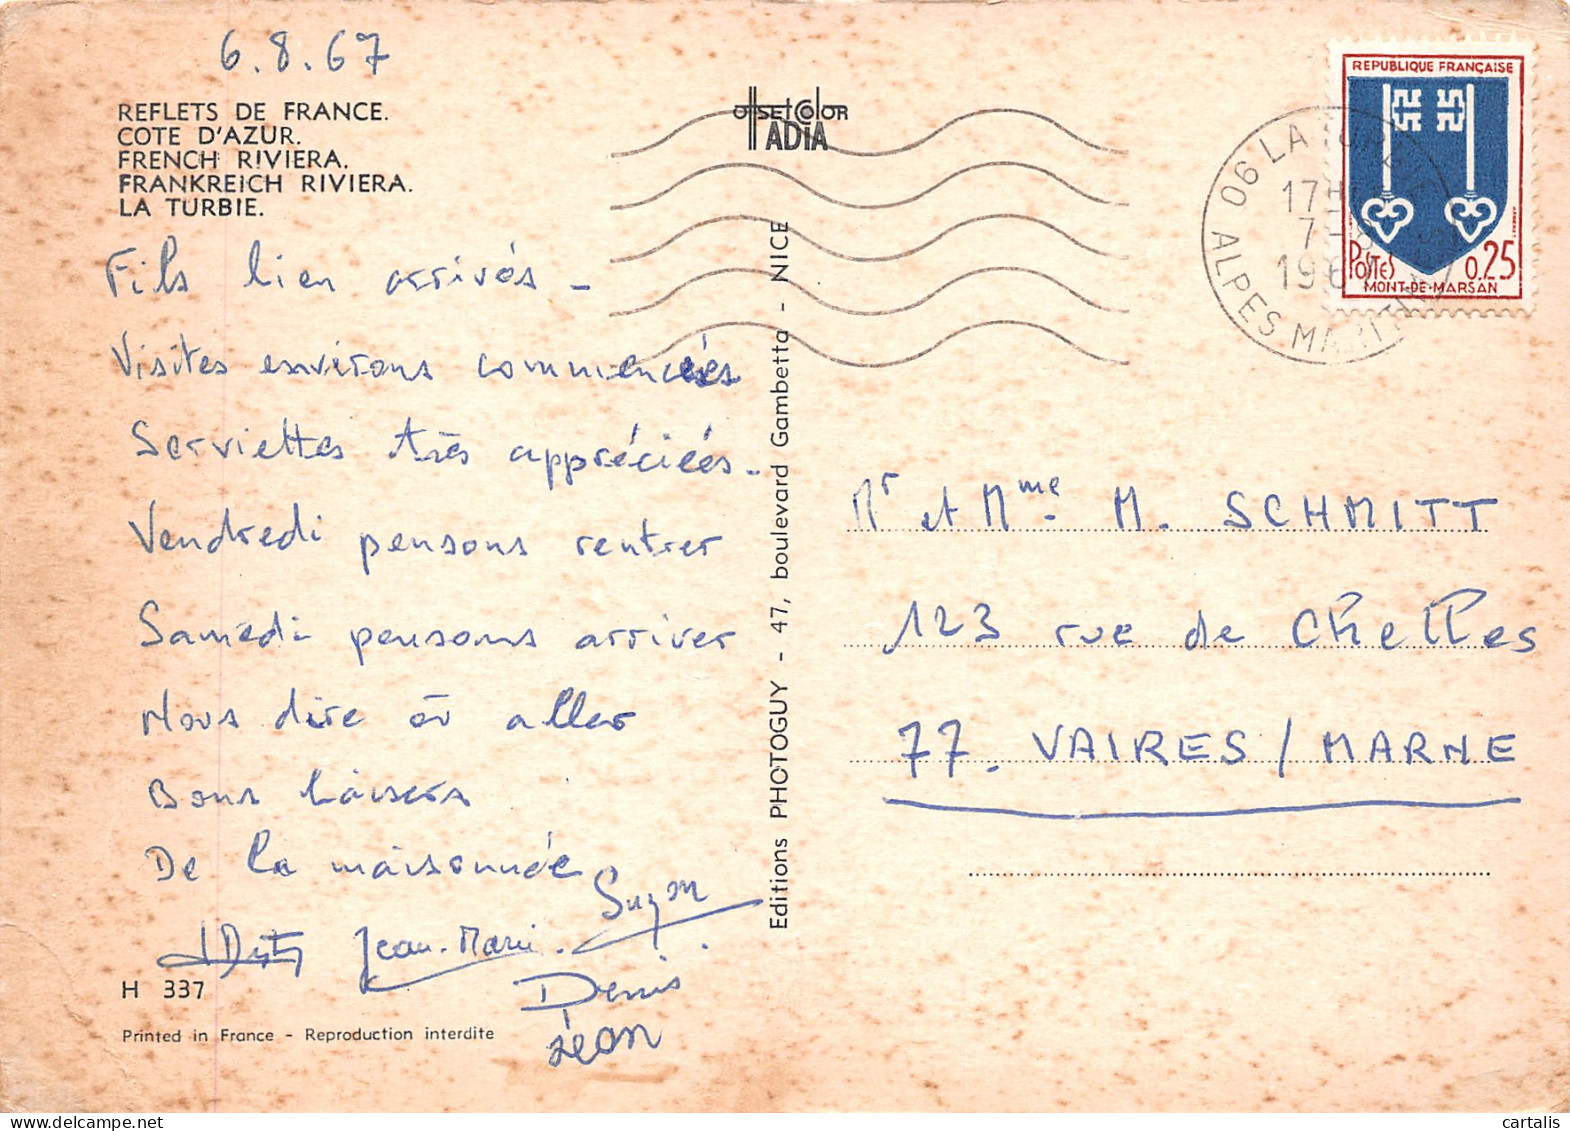 6.8.67
REFLETS DE FRANCE.
COTE D'AZUR.
FRENCH RIVIERA.
FRANKREICH RIVIERA.
LA TURBIE.
Fils bien arrivés -
Visites environs commencées
Serviettes très appréciées -
Vendredi pensons rentrer
Samedi pensons arriver
Nous dire où aller
Bons baisers
De la maisonnée
Jean-Marie.
Denis
Jean
H 337
Printed in France - Reproduction interdite
OffsetColor
ADIA
Editions PHOTOGUY - 47, boulevard Gambetta - NICE
06 LA TURBIE
17H
7-8
1967
ALPES MARITIMES
REPUBLIQUE FRANÇAISE
POSTES 0.25
MONT-DE-MARSAN
Mr et Mme. M. SCHMITT
123 rue de Chelles
77. VAIRES/MARNE
cartalis